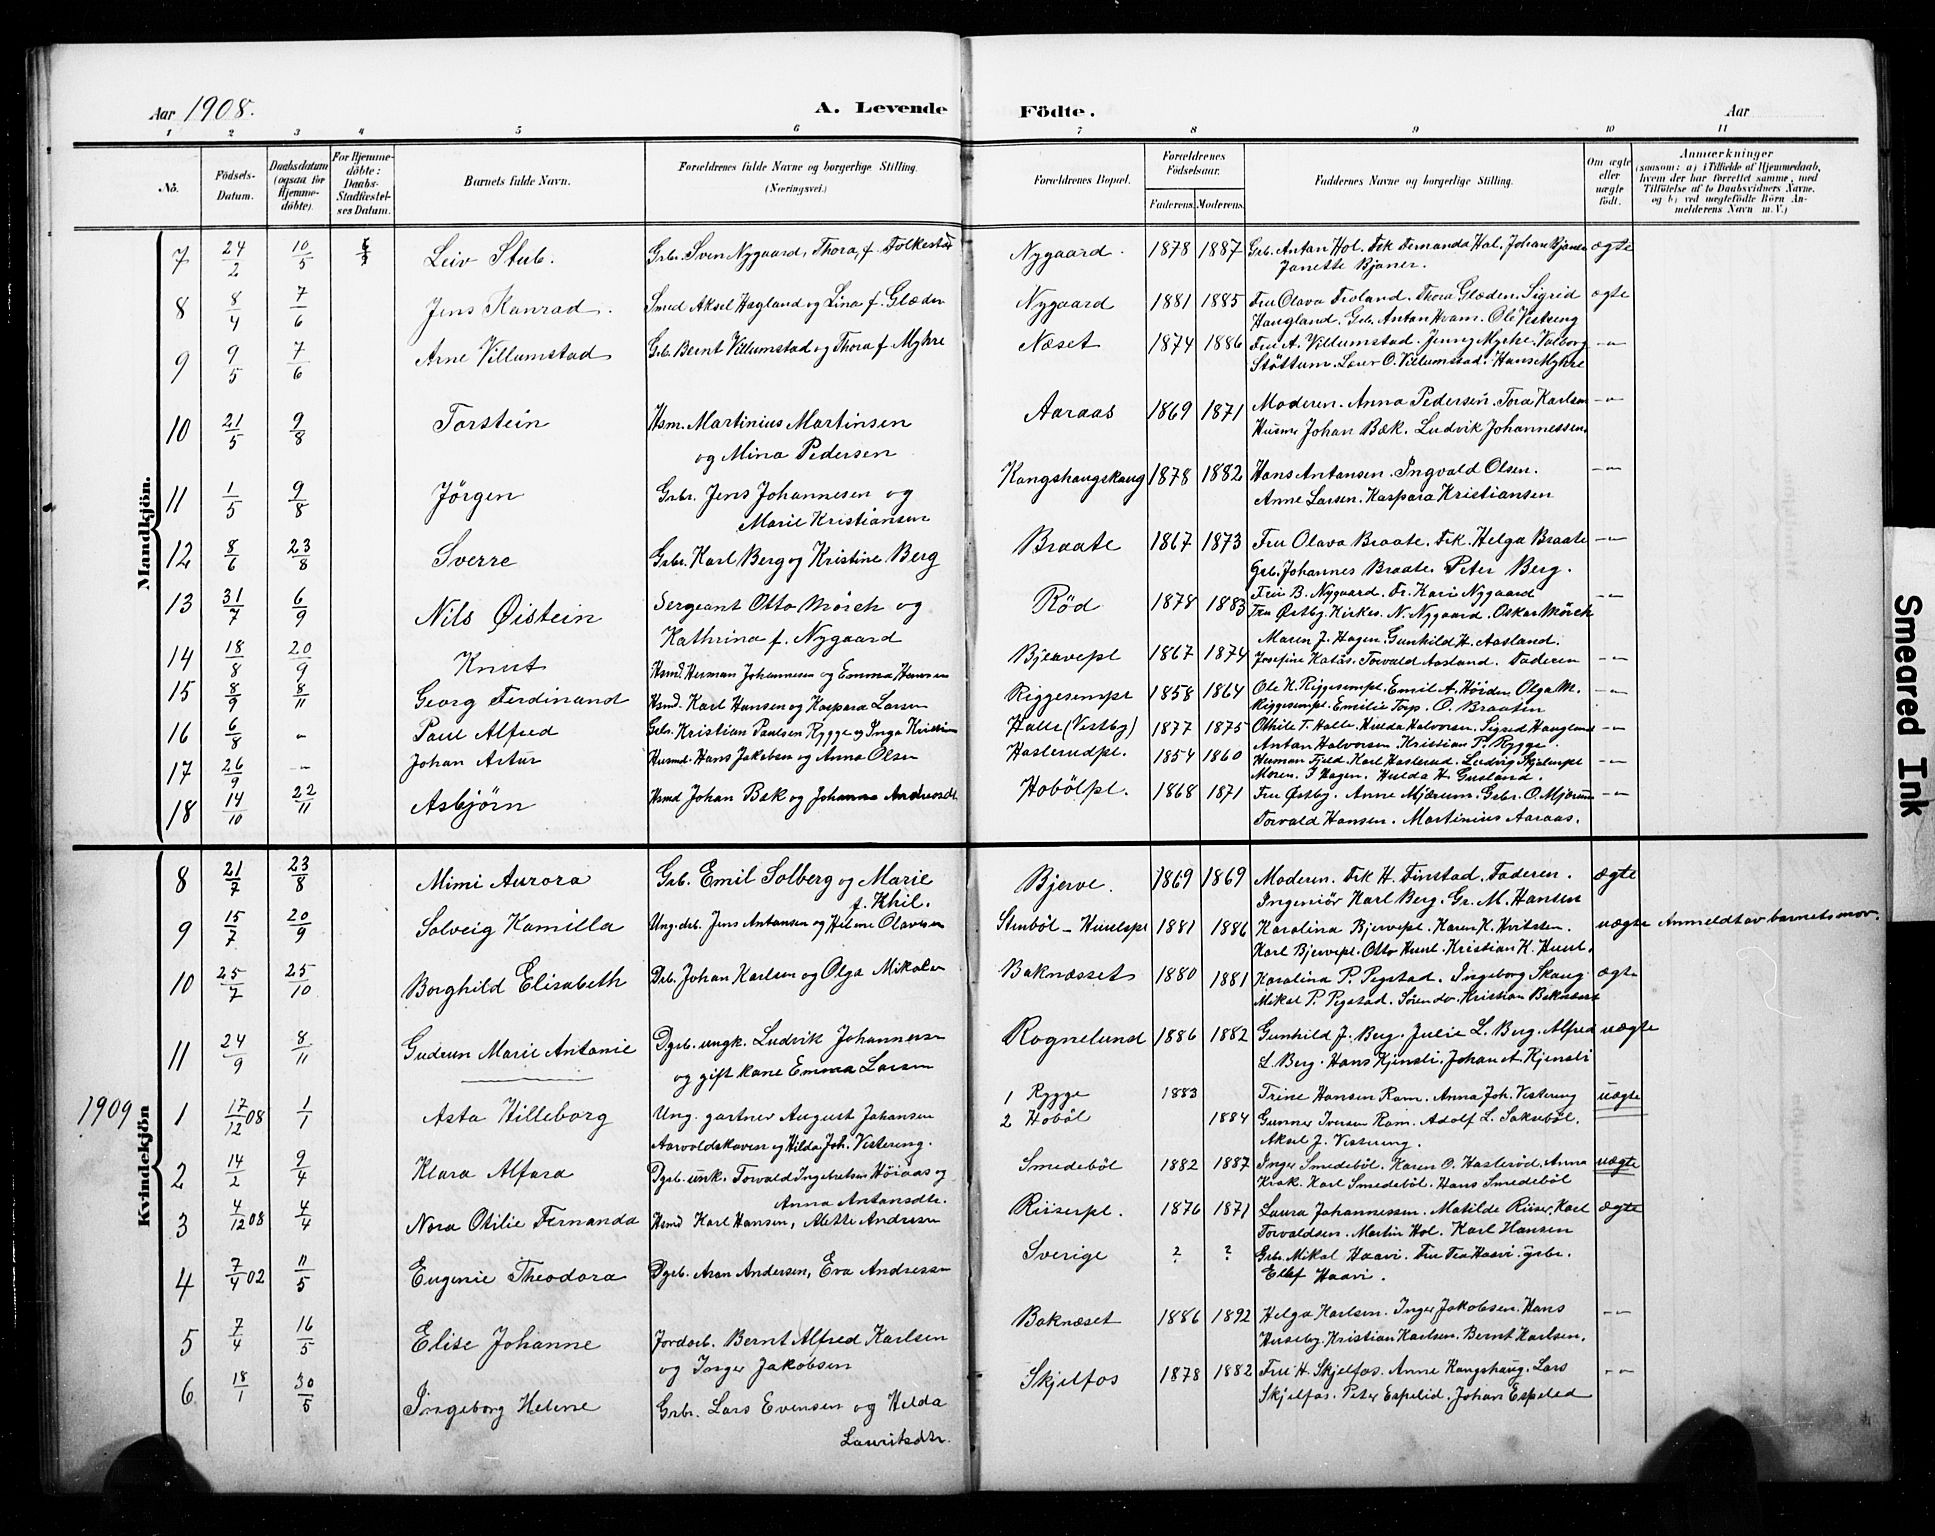 Aar 1908.
A. Levende Födte.
Aar
1 2 3 4 5 6 7 8 9 10 11
No.
Födsels-Datum.
Daabsdatum (ogsaa for Hjemme-döbte).
For Hjemme-döbte: Daabs-Stadfæstel-ses Datum.
Barnets fulde Navn.
Forældrenes fulde Navne og borgerlige Stilling.
(Næringsvei.)
Forældrenes Bopæl.
Forældrenes Födselsaar.
Faderens. Moderens.
Faddernes Navne og borgerlige Stilling.
Om ægte eller uægte födt.
Anmærkninger
(saasom: a) i Tilfælde af Hjemmedaab, hvem der har forrettet samme, med Tilföielse af to Daabsvidners Navne, og b) ved uægtefödte Börn An-melderens Navn m. V.)
Mandkjön.
7 24/2 10/5 Leiv Stub. Grbr. Sven Nygaard, Thora, f. Folkestad Nygaard. 1878 1887 Grb. Antan Hol. Frk Fernanda Hol. Johan Bjaner ægte
Janette Bjaner.
8 8/4 7/6 Jens Konrad. Smed Aksel Hagland og Lina f. Glæden Nygaard 1881 1885 Fru Olava Froland. Thora Glæden. Sigrid ægte
Haugland. Grb. Antan Hvam. Ole Vistreng
9 9/5 7/6 Arne Villumstad Grb. Bernt Villumstad og Thora f Myhre Næset 1874 1886 Fru A. Villumstad. Jenny Myrhe. Valborg -"-
Støttum. Lauer O. Villumstad. Hans Myhre
10 21/5 9/8 Torstein Hsm. Martinius Martinsen Aaraas 1869 1871 Moderen. Anna Pedersen. Tora Karlsen -"-
og Mina Pedersen Husmr Johan Bæk. Ludvik Johannessen.
11 1/5 9/8 Jörgen Grbr. Jens Johannesen og Kangshaugskaug 1878 1882 Hans Antansen. Ingvald Olsen. -"-
Marie Kristiansen Anne Larsen. Kaspara Kristiansen
12 8/6 23/8 Sverre Grbr. Karl Berg og Kristine Berg Braate 1867 1873 Fru Olava Braate. Frk. Helga Braate -"-
Grb. Johannes Braate. Peter Berg.
13 31/7 6/9 Nils Øistein Sergeant Otto Mörch og Röd 1878 1883 Fru B. Nygaard. Fr. Kari Nygaard -"-
Kathrina f. Nygaard Fru Østby. Kirkes. N. Nygaard. Oskar Mörch
14 18/8 20/9 Knut Hsmd. Herman Johannesen og Emma Hansen Bjervepl 1867 1874 Maren J. Hagen. Gunhild H. Aasland.
Josefine Kataas. Torvald Aasland. Faderen -"-
15 8/9 8/11 Georg Ferdinand Hsmd. Karl Hansen og Kaspara Larsen Riggesempl 1858 1864 Ole K. Riggesempl. Emil A. Höiden. Olga M. -"-
Riggesempl. Emilie Torp. O. Braaten
16 6/8 " Paul Alfred Grbr. Kristian Paulsen Rygge og Inga Kristin Halle (Vestby) 1877 1875 Othile T. Halle. Hulda Halvorsen. Sigrid Haugland -"-
Antan Halvorsen. Kristian P. Rygge.
17 26/9 -"- Johan Artur Husmd. Hans Jakobsen og Anna Olsen Haslerudpl. 1854 1860 Herman Fjeld. Karl Haslerud. Ludvig Skjelmpl -"-
Maren. J Hagen. Hulda H. Gusland.
18 14/10 22/11 Asbjörn Hsmd Johan Bæk og Johanne Andreasdt. Hobölpl. 1868 1871 Fru Østby. Anne Mjærum. Grbr. O. Mjærum -"-
Torvald Hansen. Martinius Aaraas.
Kvindekjön
8 21/7 23/8 Mimi Aurora Grb. Emil Solberg og Marie Bjerve. 1869 1869 Moderen. Frk H. Finstad. Faderen. ægte
f. Khil. Ingeniör Karl Berg. Gr. M. Hansen
9 15/7 20/9 Solveig Kamilla Ung.arb. Jens Antansen og Helene Olavesen Stenböl - Huulspl 1881 1886 Karolina Bjervepl. Karen K. Hvitsten. uægte Anmeldt av barnets mor.
Karl Bjervepl. Otto Huul. Kristian K. Huul.
10 25/7 25/10 Borghild Elisabeth Drb. Johan Karlsen og Olga Mikalsen Baknæsset 1880 1881 Karolina P. Pegstad. Ingeborg Skaug. ægte
Mikal P. Pegstad. Sören do. Kristian Baknæset
11 24/9 8/11 Gudrun Marie Antonie Dgrb. ungk. Ludvik Johannesen Rognelund 1886 1882 Gunhild J. Berg. Julie L. Berg. Alfred uægte
og gift kone Emma Larsen L. Berg. Hans Kjensli. Johan A. Kjensli
1909
1 17/12 08 1/1 Asta Hilleborg Ung. gartner August Johansen 1 Rygge 1883 Trine Hansen Ram. Anna Joh. Vistereng uægte
Aarvoldskaven og Hilda Joh. Vistereng. 2 Höböl 1884 Gunner Iversen Ram. Adolf L. Sakseböl.
Aksel J. Vistereng.
2 14/2 9/4 Klara Alfara Dgrb. unk. Torvald Ingebretsen Höiaas og Smedeböl 1882 1887 Inger Smedeböl. Karen O. Hasleröd. Anna uægte
Anna Antansdtr. Krok. Karl Smedeböl. Hans Smedeböl
3 4/12 08 4/4 Nora Otilie Fernanda Hsmd Karl Hansen, Alette Andresen Riiserpl. 1876 1871 Laura Johannessen. Matilde Riiser. Karl ægte
Torvaldsen. Martin Hol. Karl Hansen
4 7/4 02 11/5 Eugenie Theodora Dgrb. Aron Andersen, Eva Andresen Sverige ? ? Grbr. Mikal Haavi. Fru Tea Haavi. grbr.
Ellef Haavi.
5 7/4 16/5 Elise Johanne Jordarb. Bernt Alfred Karlsen Baknæset 1886 1892 Helga Karlsen. Inger Jakobsen. Hans -"-
og Inger Jakobsen Huseby. Kristian Karlsen. Bernt Karlsen.
6 18/1 30/5 Ingeborg Helene Grbr. Lars Evensen og Helda Skjelfos 1878 1882 Fru H. Skjelfos. Anne Kangshaug. Lars -"-
Lauritsdtr. Skjelfos. Peter Espelid. Johan Espelid
Smeared Ink